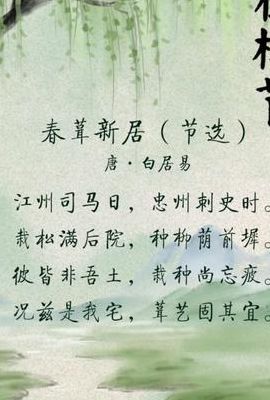 植树节
春葺新居（节选）
唐·白居易
江州司马日，忠州刺史时。
栽松满后院，种柳荫前墀。
彼皆非吾土，栽种尚忘疲。
况兹是我宅，葺艺固其宜。